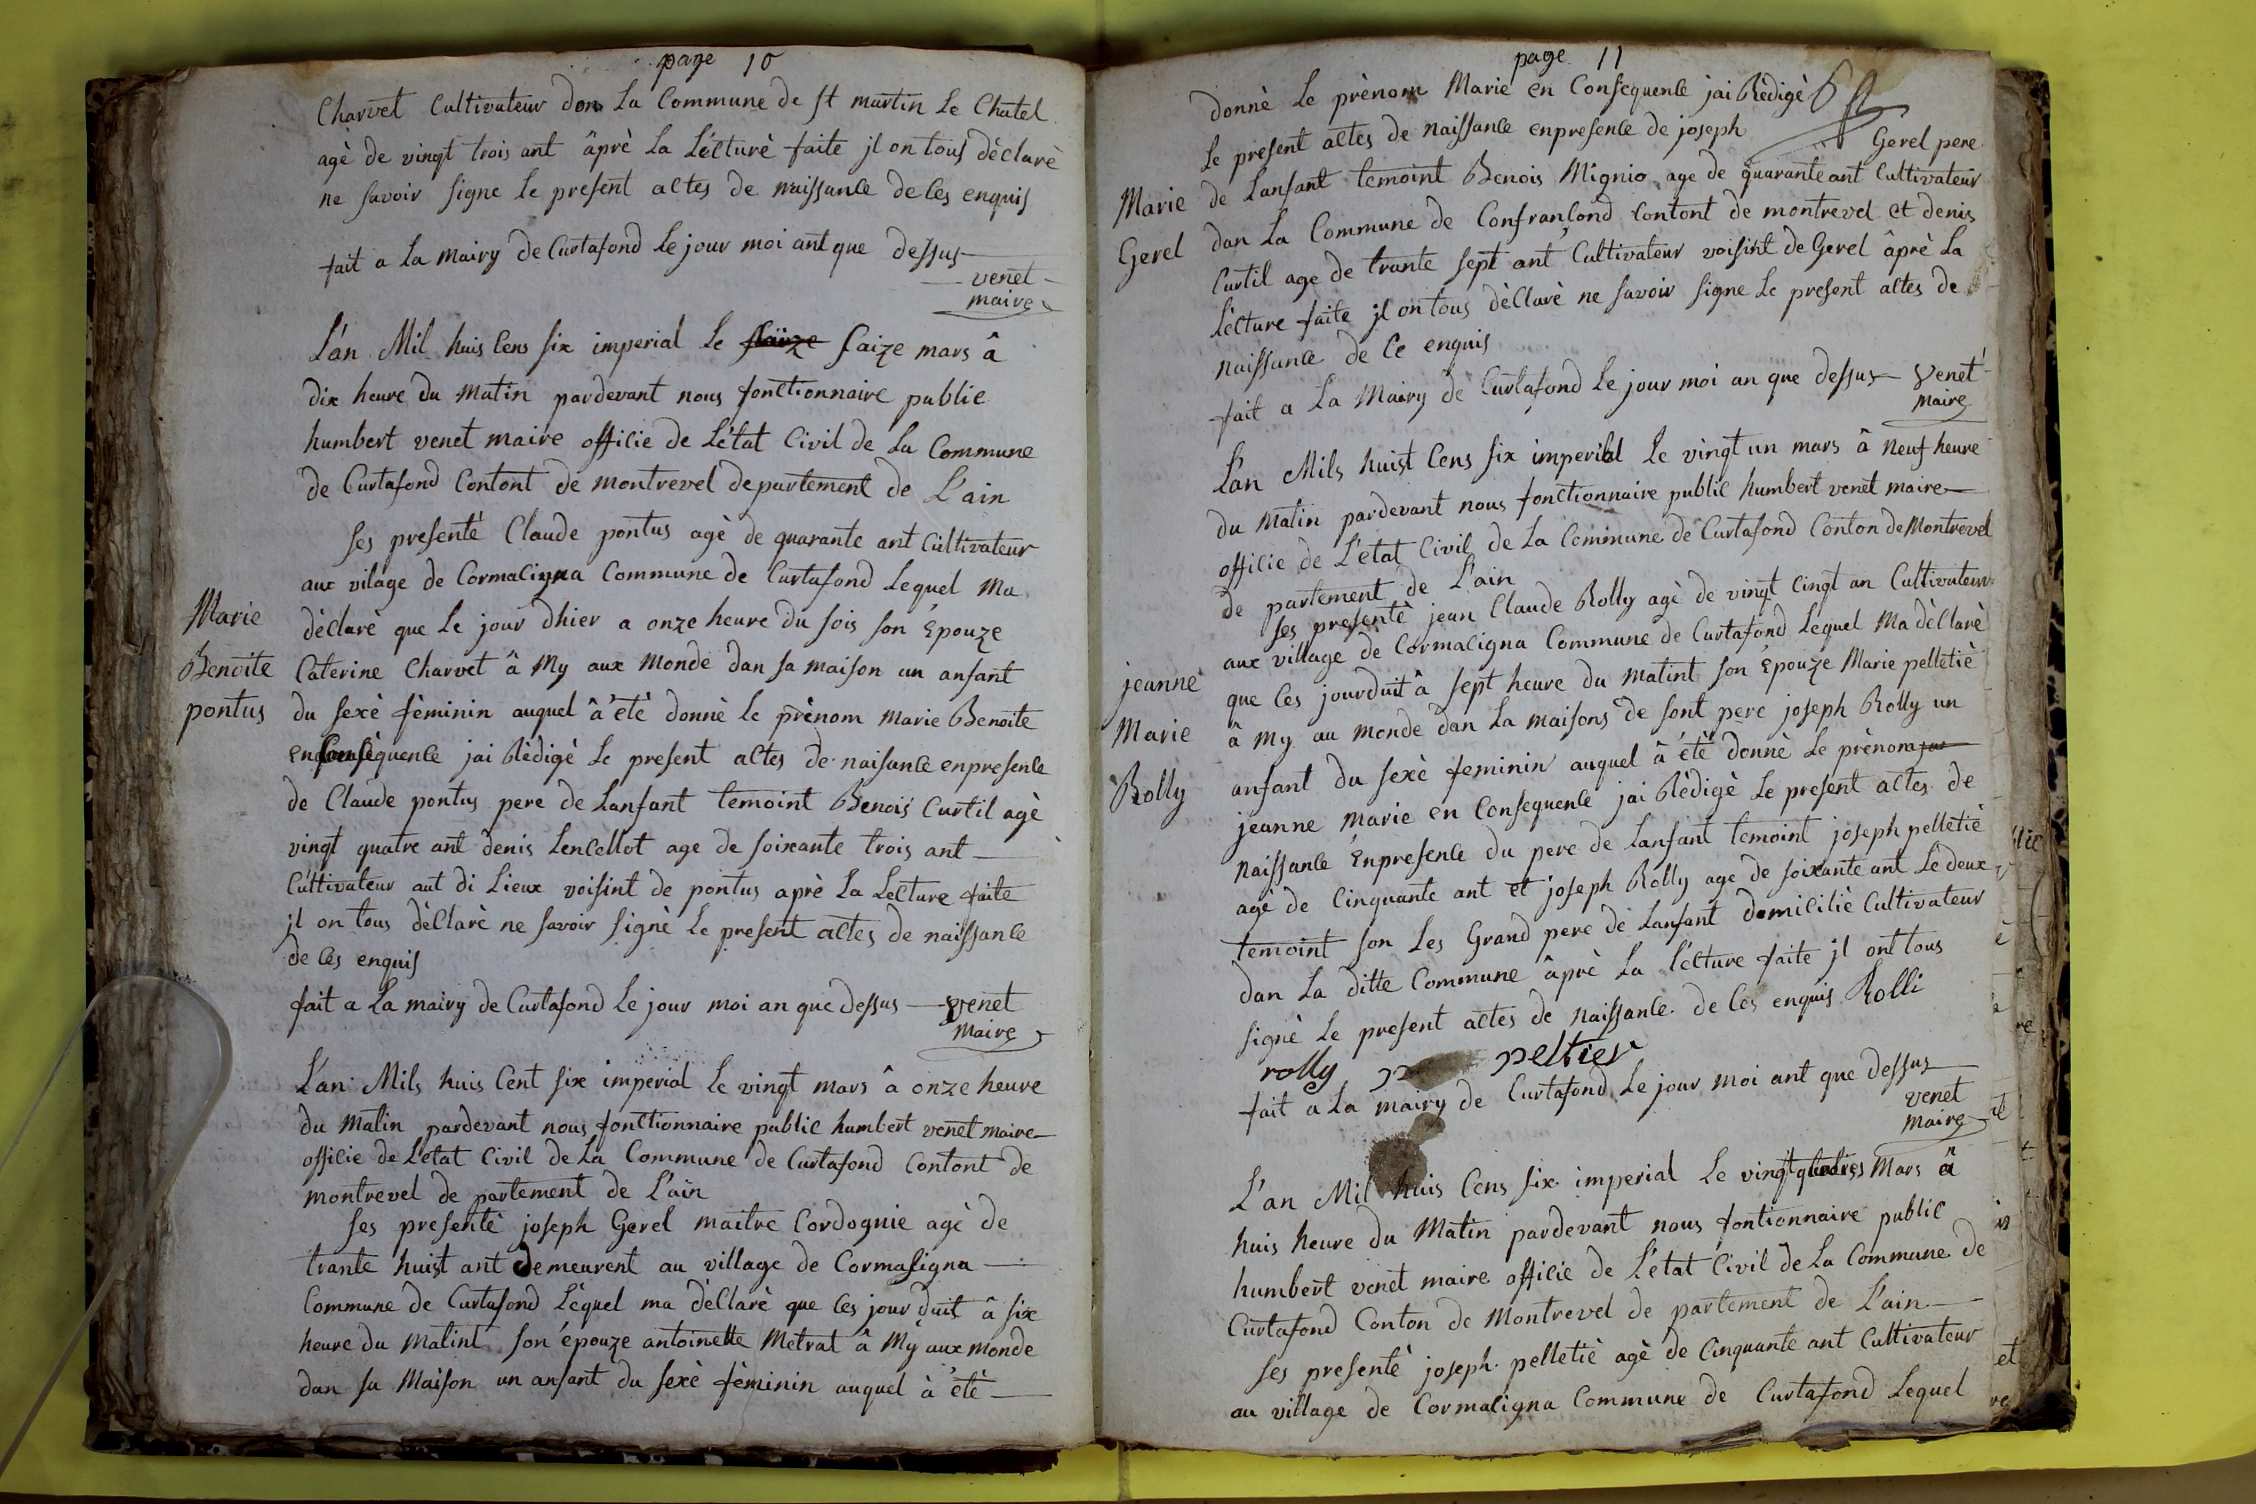 page 10
Charvet Cultivateur dan La Commune de st martin Le Chatel
agè de vingt trois ant âprè La Lécturè faite jl on tous dèclarè
ne savoir signe Le present actes de naissance de ces enquis
fait a La mairy de Curtafond Le jour moi ant que dessus
venet
maire
L'an Mil huis Cens six imperial Le saize mars â
dix heure du matin pardevant nous fonctionnaire public
humbert venet maire officie de L'état Civil de La Commune
de Curtafond Contont de montrevel departement de L'ain
ses presenté Claude pontus agè de quarante ant Cultivateur
aux vilage de Cormacigna Commune de Curtafond Lequel Ma
dèclarè que Le jour dhier a onze heure du sois son Epouze
Caterine Charvet â My aux Monde dan sa maison un anfant
du sexè fèminin auquel â été donnè Le prènom Marie Benoite
en Consèquence jai Rèdigè Le present actes de naisance enpresence
de Claude pontus pere de Lanfant temoint Benois Curtil agè
vingt quatre ant denis Lencellot age de soixante trois ant
Cultivateur aut di Lieux voisint de pontus aprè La Lecture faite
jl on tous dèclarè ne savoir signè Le present actes de naissance
de ces enquis
fait a La mairy de Curtafond Le jour moi an que dessus venet
Maire
Marie
Benoite
pontus
L'an Mils huis Cent six imperial Le vingt mars â onze heure
du Matin pardevant nous fonctionnaire public humbert venet maire
officie de L'état Civil de La Commune de Curtafond Contont de
montrevel de partement de L'ain
ses presentè joseph Gerel maitre Cordognie agè de
trante huist ant demeurent au village de Cormasigna
Commune de Curtafond Léquel ma dèclarè que ces jour duit â six
heure du Matint son épouze antoinette Metrat â My aux monde
dan sa Maison un anfant du sexè fèminin auquel à été
page 11
donnè Le prènom Marie en Consequence jai Rèdigè
Le present actes de naissance enpresence de joseph Gerel pere
de Lanfant temoint Benois Mignio age de quarante ant Cultivateur
dan La Commune de Confrancond Contont de montrevel et denis
Curtil age de trante sept ant Cultivateur voisint de Gerel âprè La
Lècture faite jl on tous dèclarè ne savoir signe Le present actes de
naissance de Ce enquis
fait a La Mairy de Curtafond Le jour moi an que dessus Venet
Maire
Marie
Gerel
L'an Mils huist Cens six imperial Le vingt un mars â neuf heure
du Matin pardevant nous fonctionnaire public humbert venet maire
officie de L'état Civil de La Commune de Curtafond Conton de Montrevel
de partement de L'ain
ses presentè jean Claude Rolly agè de vingt Cingt an Cultivateur
aux village de Cormacigna Commune de Curtafond Léquel Ma dèclarè
que Ces jourduit â sept heure du Matint son Epouze Marie pelletiè
â My au monde dan La maisons de sont pere joseph Rolly un
anfant du sexè feminin auquel â été donnè Le prènom
jeanne Marie en Consequence jai Rèdigè Le present actes de
naissance Enpresence du pere de Lanfant temoint joseph pelletiè
agé de Cinquante ant et joseph Rolly age de soixante ant Lé deux
temoint son Les Grand pere de Lanfant domiciliè Cultivateur
dan La ditte Commune âprè La lécture faite jl ont tous
signè Le present actes de naissance de Ces enquis Rolli
rolly peltier
fait a La mairy de Curtafond Le jour moi ant que dessus
venet
Maire
jeanne
Marie
Rolly
L'an Mil huis Cens six imperial Le vingt quatres Mars â
huis heure du Matin pardevant nous fontionnaire public
humbert venet maire officie de L'état Civil de La Commune de
Curtafond Conton de Montrevel de partement de L'ain
ses presentè joseph pelletiè agè de Cinquante ant Cultivateur
au village de Cormacigna Commune de Curtafond Lequel